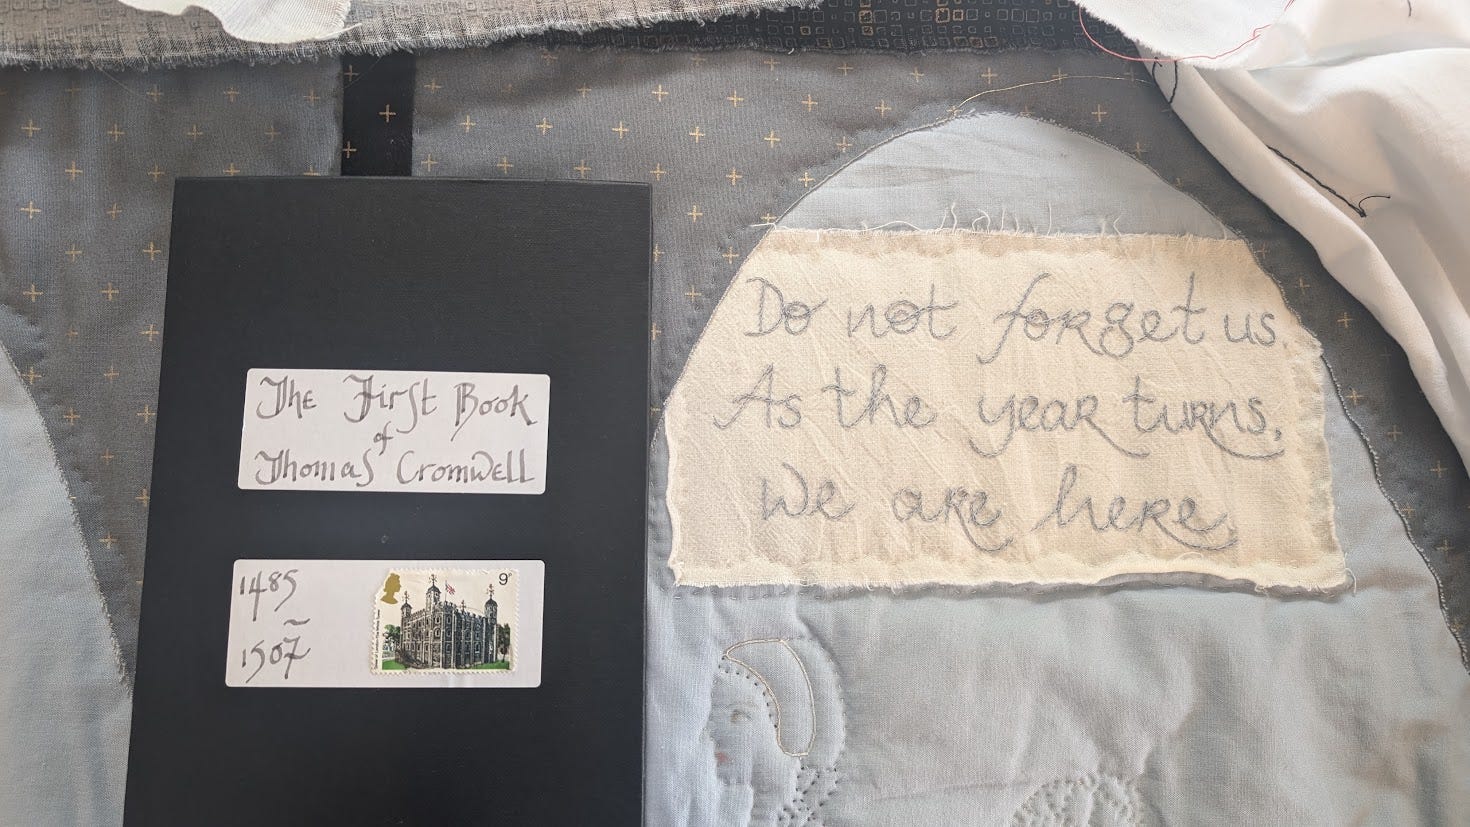 The First Book
of
Thomas Cromwell
1485
~
1507
9P
Do not forget us.
As the year turns,
we are here,